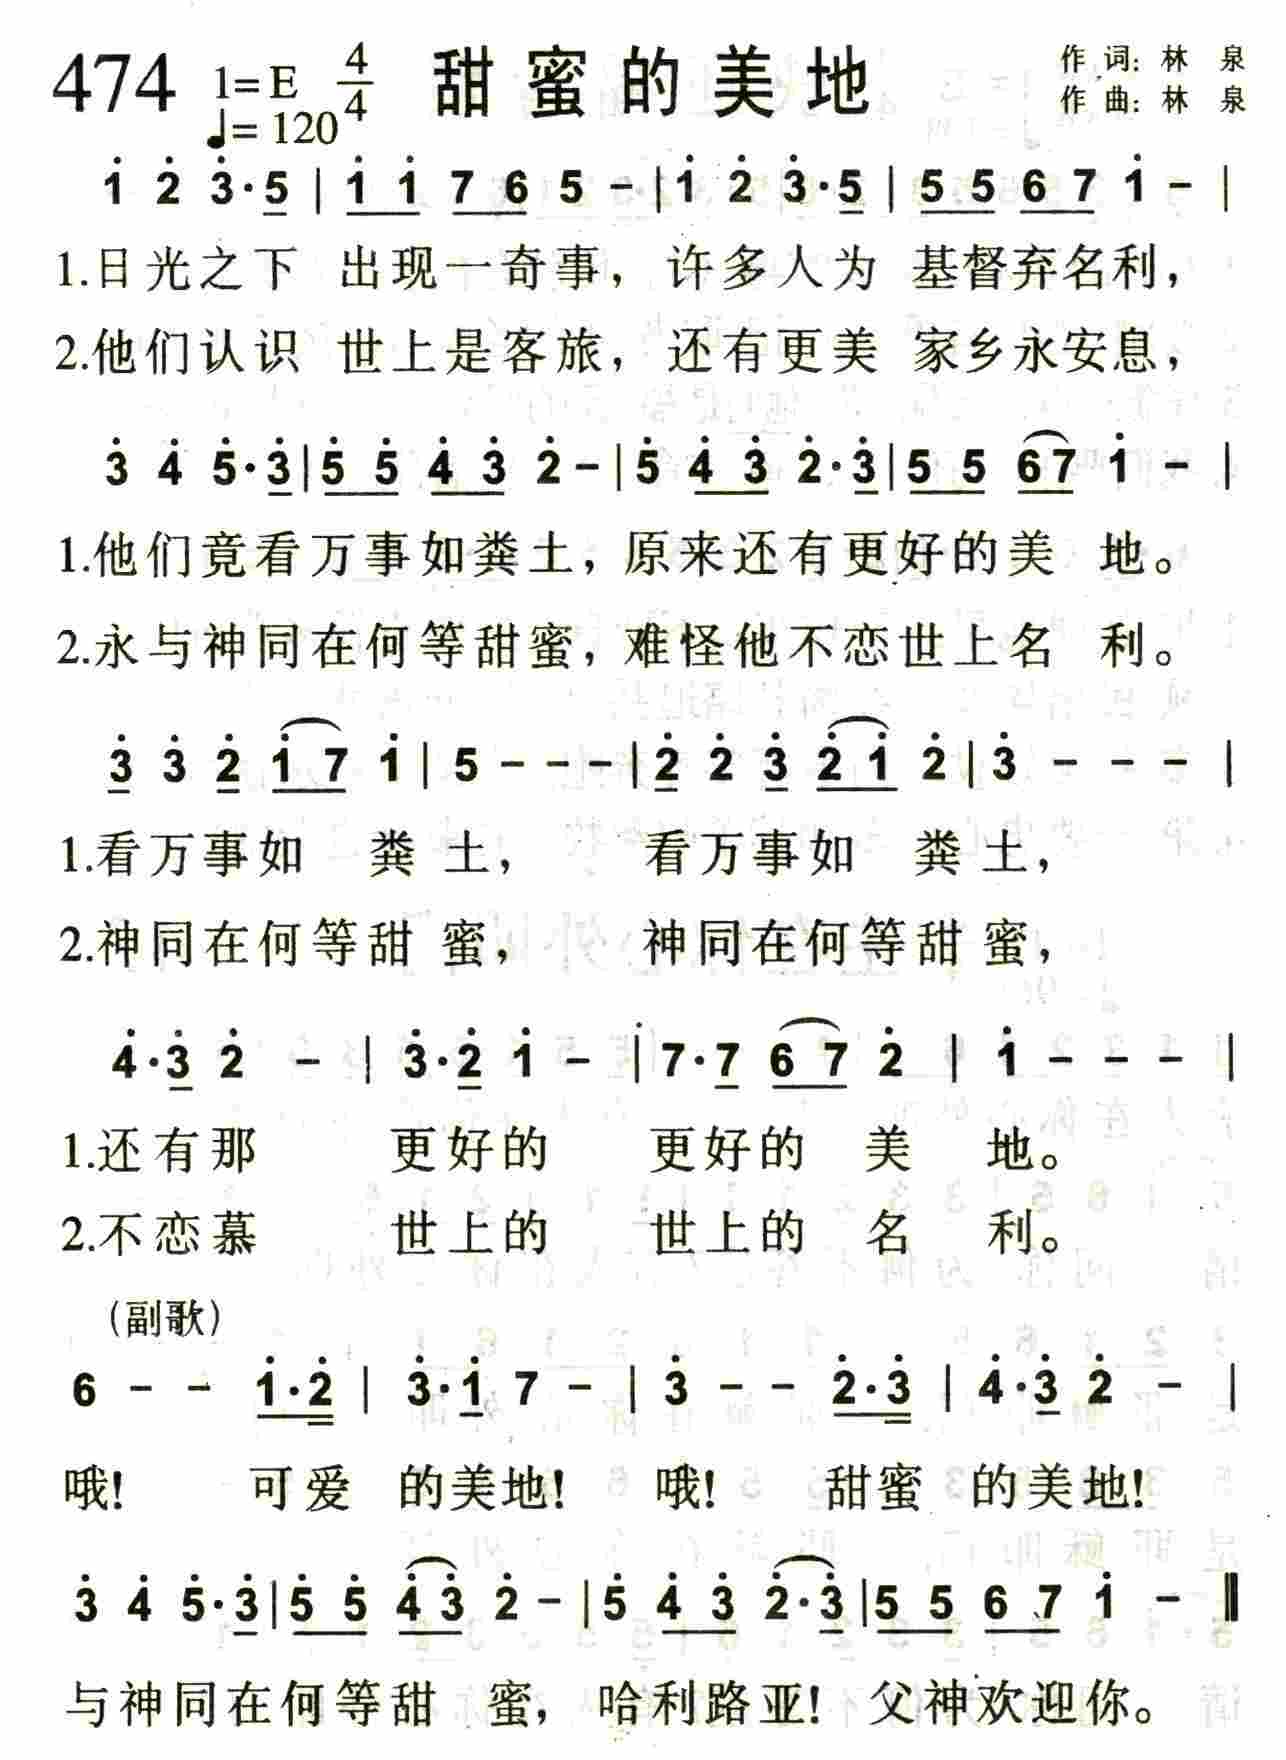 474 1=E 4/4 甜蜜的美地 作词：林 泉
♩=120 作曲：林 泉
1̇ 2̇ 3̇·5̇ | 1̇ 1̇ 7 6 5 - | 1̇ 2̇ 3̇·5̇ | 5 5 6 7 1̇ - |
1.日光之下 出现一奇事，许多人为 基督弃名利，
2.他们认识 世上是客旅，还有更美 家乡永安息，
3̇ 4̇ 5̇·3̇ | 5̇ 5̇ 4̇ 3̇ 2̇ - | 5̇ 4̇ 3̇ 2̇·3̇ | 5̇ 5̇ 67 1̇ - |
1.他们竟看万事如粪土，原来还有更好的美 地。
2.永与神同在何等甜蜜，难怪他不恋世上名 利。
3̇ 3̇ 2̇ 1̇ 7 1̇ | 5 - - - | 2̇ 2̇ 3̇ 2̇ 1̇ 2̇ | 3̇ - - - |
1.看万事如 粪 土， 看万事如 粪 土，
2.神同在何等甜 蜜， 神同在何等甜 蜜，
4̇·3̇ 2̇ - | 3̇·2̇ 1̇ - | 7·7 6 7 2̇ | 1̇ - - - |
1.还有那 更好的 更好的 美 地。
2.不恋慕 世上的 世上的 名 利。
（副歌）
6 - - 1̇·2̇ | 3̇·1̇ 7 - | 3̇ - - 2̇·3̇ | 4̇·3̇ 2̇ - |
哦! 可爱 的美地! 哦! 甜蜜 的美地!
3̇ 4̇ 5̇·3̇ | 5̇ 5̇ 4̇ 3̇ 2̇ - | 5̇ 4̇ 3̇ 2̇·3̇ | 5̇ 5̇ 6 7 1̇ - ‖
与神同在何等甜 蜜，哈利路亚! 父神欢迎你。